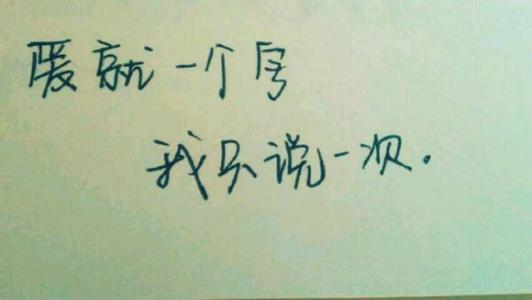 爱就一个字
我只说一次.